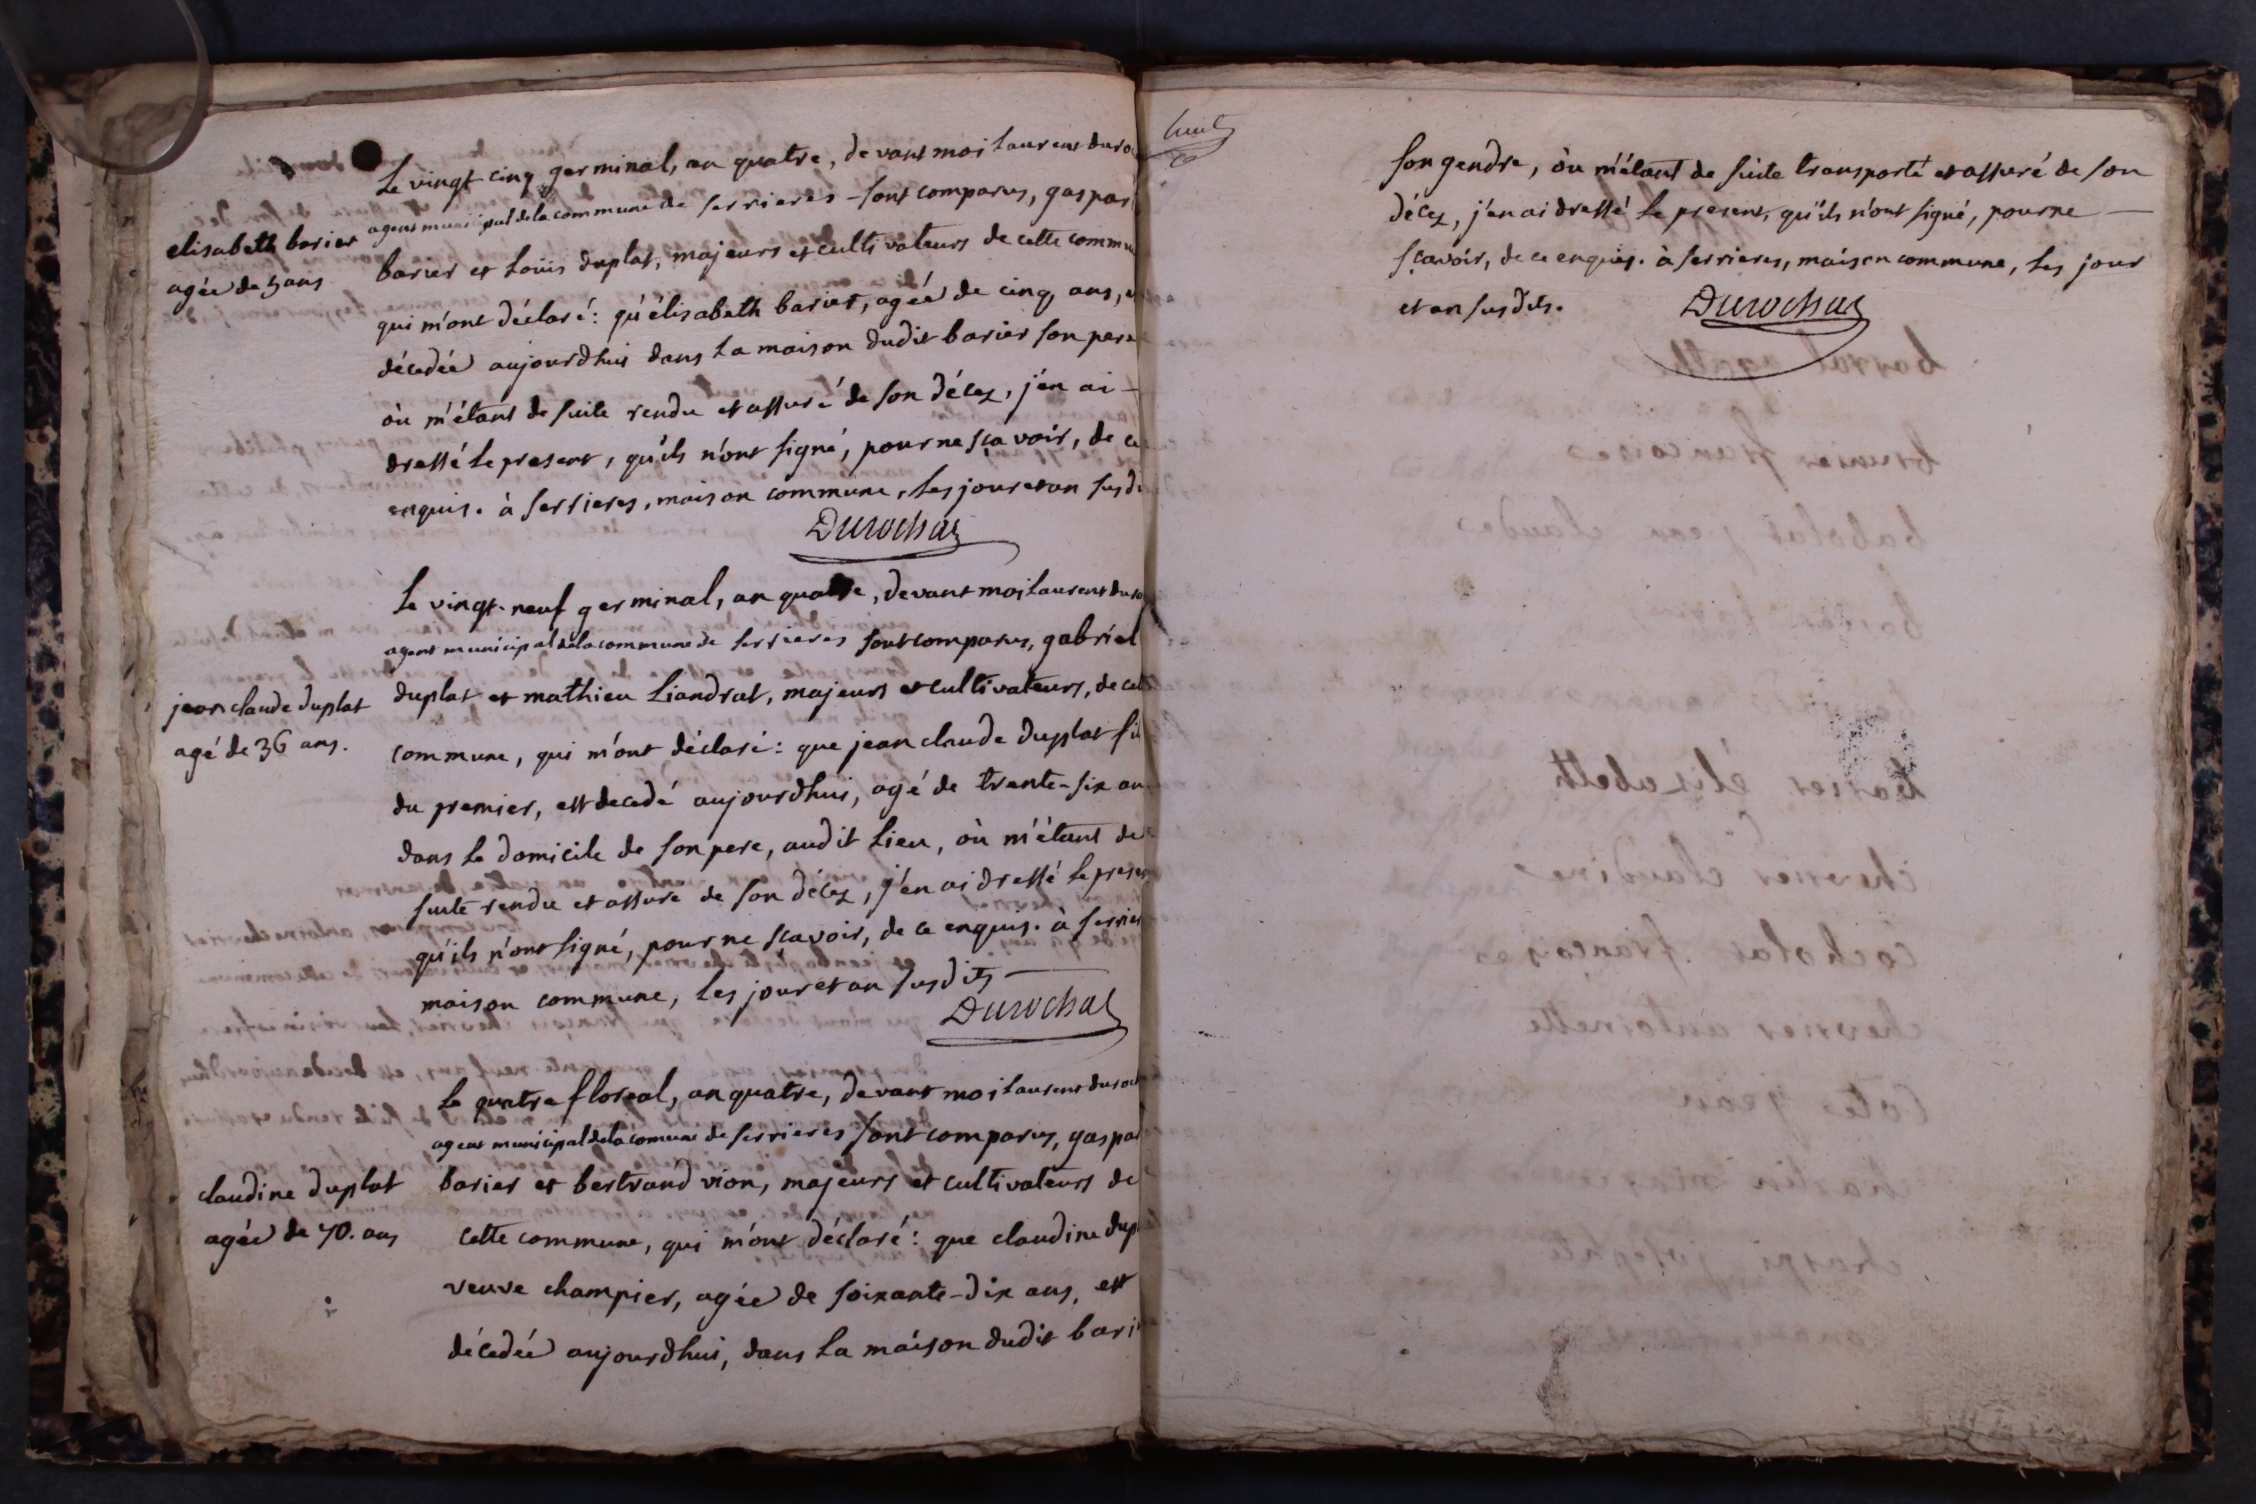 Le vingt cinq germinal, an quatre, devant moi Laurent duro
agent municipal de la commune de serrieres - sont comparus, gaspar
elisabeth barier
agée de 5 ans
barier et Loüis duplat, majeurs et cultivateurs de cette commu
qui m'ont déclaré: qu'élisabeth barier, agée de cinq ans, e
décedée aujourdhui dans La maison dudit barier son pere
où m'étant de suite rendu et assuré de son décez, j'en ai -
dressé Le present, qu'ils n'ont signé, pour ne sçavoir, de ce
enquis. à serrieres, maison commune, Les jour et an susdi
Durochat
Le vingt-neuf germinal, an quatre, devant moi Laurent duro
agent municipal de la commune de serrieres sont comparus, gabriel
jean claude duplat
agé de 36 ans.
duplat et mathieu Liandrat, majeurs et cultivateurs, de cett
commune, qui m'ont déclaré: que jean claude duplat fil
du premier, est decedé aujourdhui, agé de trente-six an
dans Le domicile de son pere, audit Lieu, où m'étant de
suite rendu et assuré de son décez, j'en ai dressé Le presen
qu'ils n'ont signé, pour ne sçavoir, de ce enquis. à serrier
maison commune, Les jour et an susdits
Durochat
Le quatre floreal, an quatre, devant moi Laurent duroch
agent municipal de la comune de serrieres sont comparus, gaspar
claudine duplat
agée de 70. ans
barier et bertrand vion, majeurs et cultivateurs de
cette commune, qui m'ont déclaré: que claudine dupl
veuve champier, agée de soixante-dix ans, est
décedée aujourdhui, dans La maison dudit bari
huit
son gendre, où m'étant de suite transporté et assuré de son
décez, j'en ai dressé Le present, qu'ils n'ont signé, pour ne —
sçavoir, de ce enquis. à serrieres, maison commune, Les jour
et an susdits.
Durochat